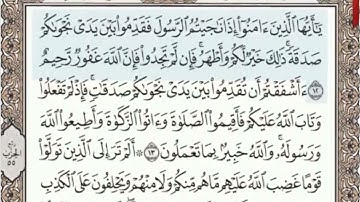 يَٰٓأَيُّهَا ٱلَّذِينَ ءَامَنُوٓا۟ إِذَا نَٰجَيْتُمُ ٱلرَّسُولَ فَقَدِّمُوا۟ بَيْنَ يَدَىْ نَجْوَىٰكُمْ
صَدَقَةً ۚ ذَٰلِكَ خَيْرٌ لَّكُمْ وَأَطْهَرُ ۚ فَإِن لَّمْ تَجِدُوا۟ فَإِنَّ ٱللَّهَ غَفُورٌ رَّحِيمٌ
١٢ ءَأَشْفَقْتُمْ أَن تُقَدِّمُوا۟ بَيْنَ يَدَىْ نَجْوَىٰكُمْ صَدَقَٰتٍ ۚ فَإِذْ لَمْ تَفْعَلُوا۟
وَتَابَ ٱللَّهُ عَلَيْكُمْ فَأَقِيمُوا۟ ٱلصَّلَوٰةَ وَءَاتُوا۟ ٱلزَّكَوٰةَ وَأَطِيعُوا۟ ٱللَّهَ
وَرَسُولَهُۥ ۚ وَٱللَّهُ خَبِيرٌۢ بِمَا تَعْمَلُونَ ١٣ ۞ أَلَمْ تَرَ إِلَى ٱلَّذِينَ تَوَلَّوْا۟
قَوْمًا غَضِبَ ٱللَّهُ عَلَيْهِم مَّا هُم مِّنكُمْ وَلَا مِنْهُمْ وَيَحْلِفُونَ عَلَى ٱلْكَذِبِ
ربع
الحزب
٥٥